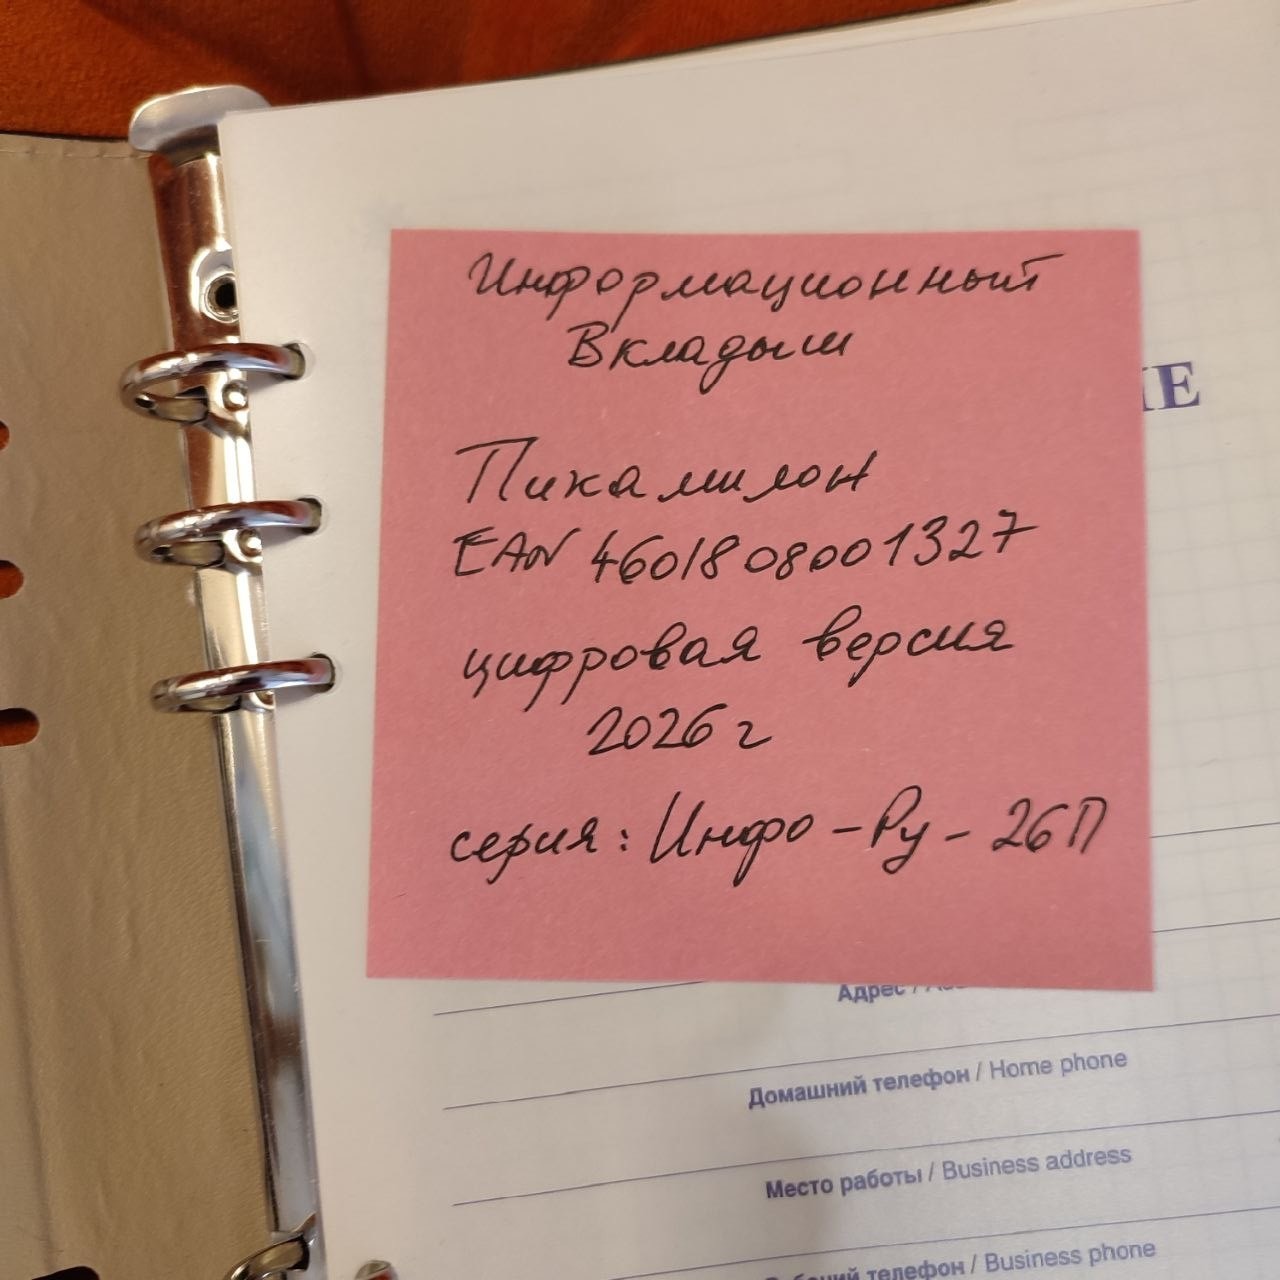 Информационный
Вкладыш
Пикамилон
EAN 4601808001327
цифровая версия
2026 г
серия: Инфо-Ру-26П
IE
Адрес /
Домашний телефон / Home phone
Место работы / Business address
телефон / Business phone